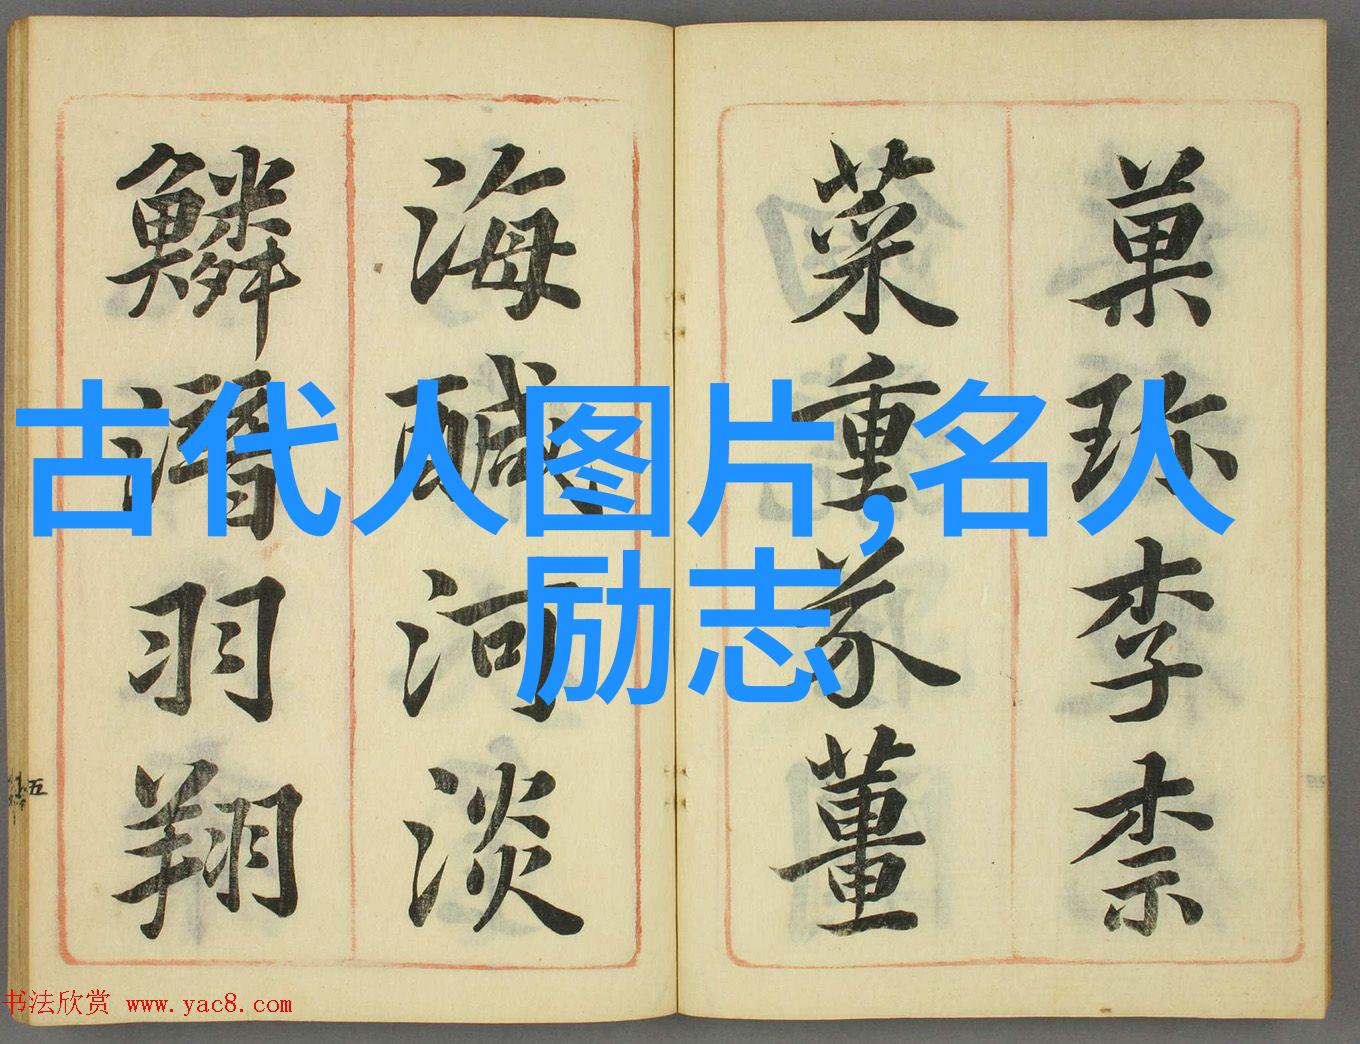 古代人图片,名人
励志
菓珎李柰
菜重芥薑
海醎河淡
鱗潜羽翔
五
书法欣赏 www.yac8.com